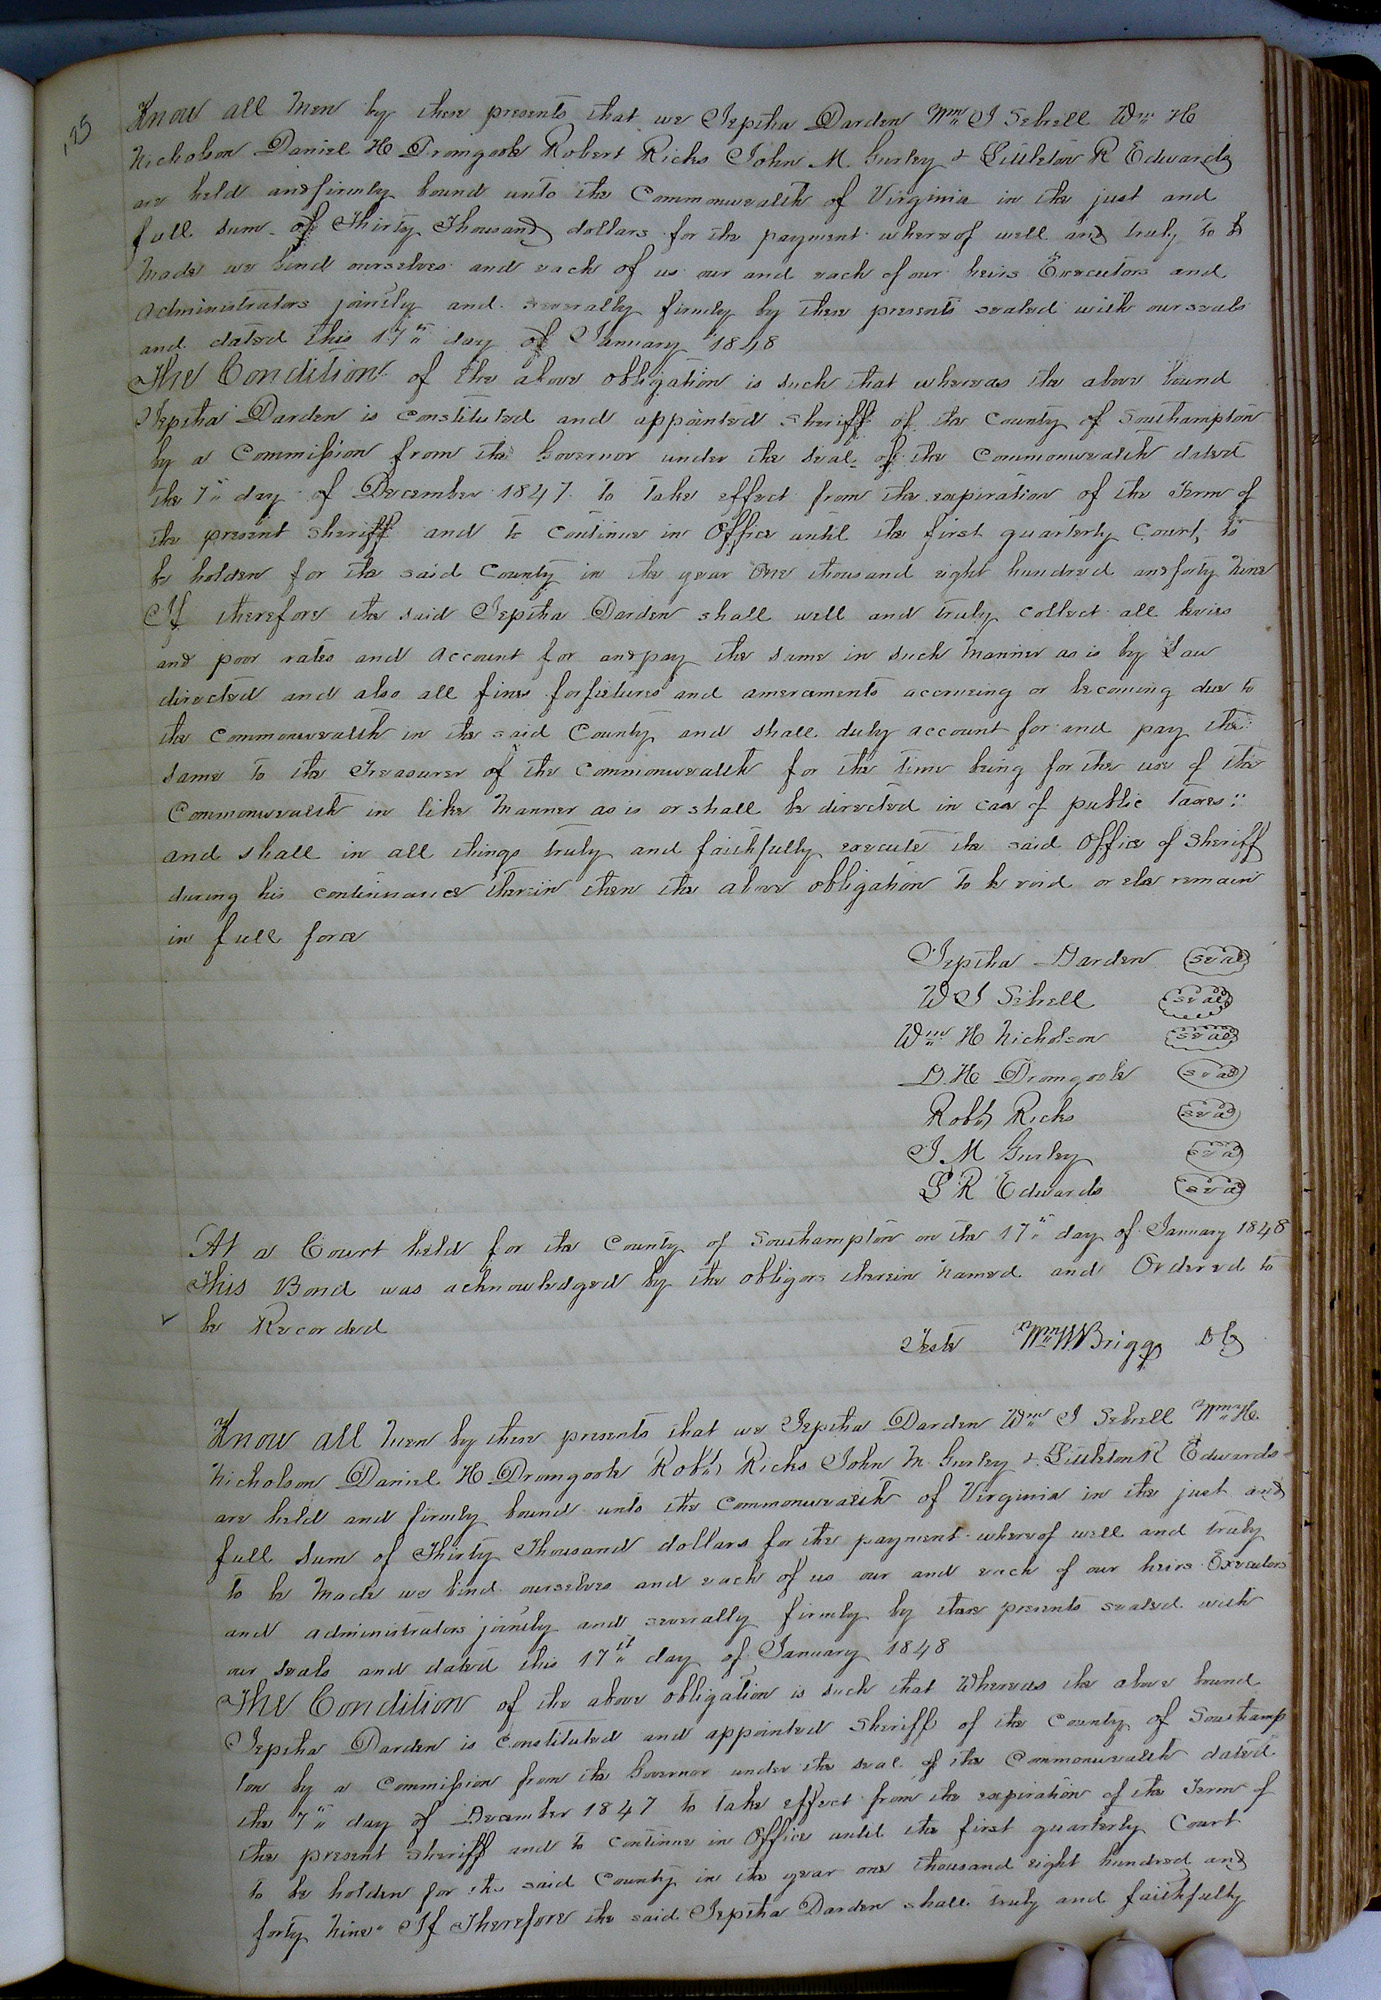 125
Know all Men by these presents that we Jeptha Darden Wm J Sebrell Wm H
Nicholson Daniel H Dromgoole Robert Ricks John M. Gurley & Littleton R Edwards
are held and firmly bound unto the Commonwealth of Virginia in the just and
full sum of Thirty Thousand dollars for the payment whereof well and truly to be
Made we bind ourselves and each of us our and each of our heirs Executors and
Administrators jointly and severally firmly by these presents sealed with our seals
and dated this 17th day of January 1848
The Condition of the above obligation is such that whereas the above bound
Jeptha Darden is constituted and appointed Sheriff of the County of Southampton
by a Commission from the Governor under the Seal of the Commonwealth dated
the 7th day of December 1847 to take effect from the expiration of the Term of
the present Sheriff and to continue in Office until the first quarterly Court, to
be holden for the said County in the year One thousand eight hundred and forty Nine
If therefore the said Jeptha Darden shall well and truly collect all levies
and poor rates and account for and pay the same in such Manner as is by Law
directed and also all fines forfietures and amercements accrueing or becoming due to
the Commonwealth in the said County and shall duly account for and pay the
same to the Treasurer of the Commonwealth for the time being for the use of the
Commonwealth in like Manner as is or shall be directed in case of public taxes
and shall in all things truly and faithfully execute the said Office of Sheriff
during his continuance therein then the above obligation to be void or else remain
in full force
Jeptha Darden seal
W J Sebrell seal
Wm H Nicholson seal
D. H Dromgoole seal
Robt Ricks seal
J M Gurley seal
L R Edwards seal
At a Court held for the County of Southampton on the 17th day of January 1848
This Bond was acknowledged by the obligors therein Named and Ordered to
be Recorded
Teste Wm W Briggs DC
Know all Men by these presents that we Jeptha Darden Wm J Sebrell Wm H.
Nicholson Daniel H Dromgoole Robt Ricks John M. Gurley & Littleton R Edwards
are held and firmly bound unto the Commonwealth of Virginia in the just and
full sum of Thirty Thousand dollars for the payment whereof well and truly
to be Made we bind ourselves and each of us our and each of our heirs Executors
and administrators jointly and severally firmly by these presents sealed with
our seals and dated this 17th day of January 1848
The Condition of the above obligation is such that Whereas the above bound
Jeptha Darden is Constituted and appointed Sheriff of the County of Southamp
ton by a Commission from the Governor under the seal of the Commonwealth dated
the 7th day of December 1847 to take effect from the expiration of the Term of
the present Sheriff and to continue in Office until the first quarterly Court
to be holden for the said County in the year one thousand eight hundred and
forty Nine" If Therefore the said Jeptha Darden shall truly and faithfully